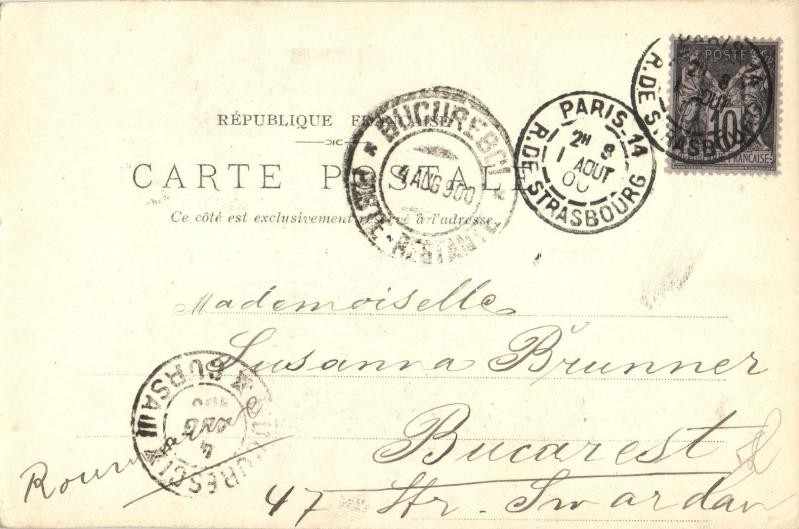 RÉPUBLIQUE FRANÇAISE
CARTE POSTALE
Ce côté est exclusivement réservé à l'adresse
POSTE
10
RÉPUBLIQUE FRANÇAISE
PARIS-14
2H 8
1 AOUT
R. DE STRASBOURG
PARIS-14
2H 8
1 AOUT
00
R. DE STRASBOURG
* BUCURESCI *
4 AUG 900
POSTE-RESTANTE
Mademoiselle
Susanna Brunner
Bucarest
47 Str. Swardan
Roumanie
BUCURESCI
4 AUG 900
CURSA III